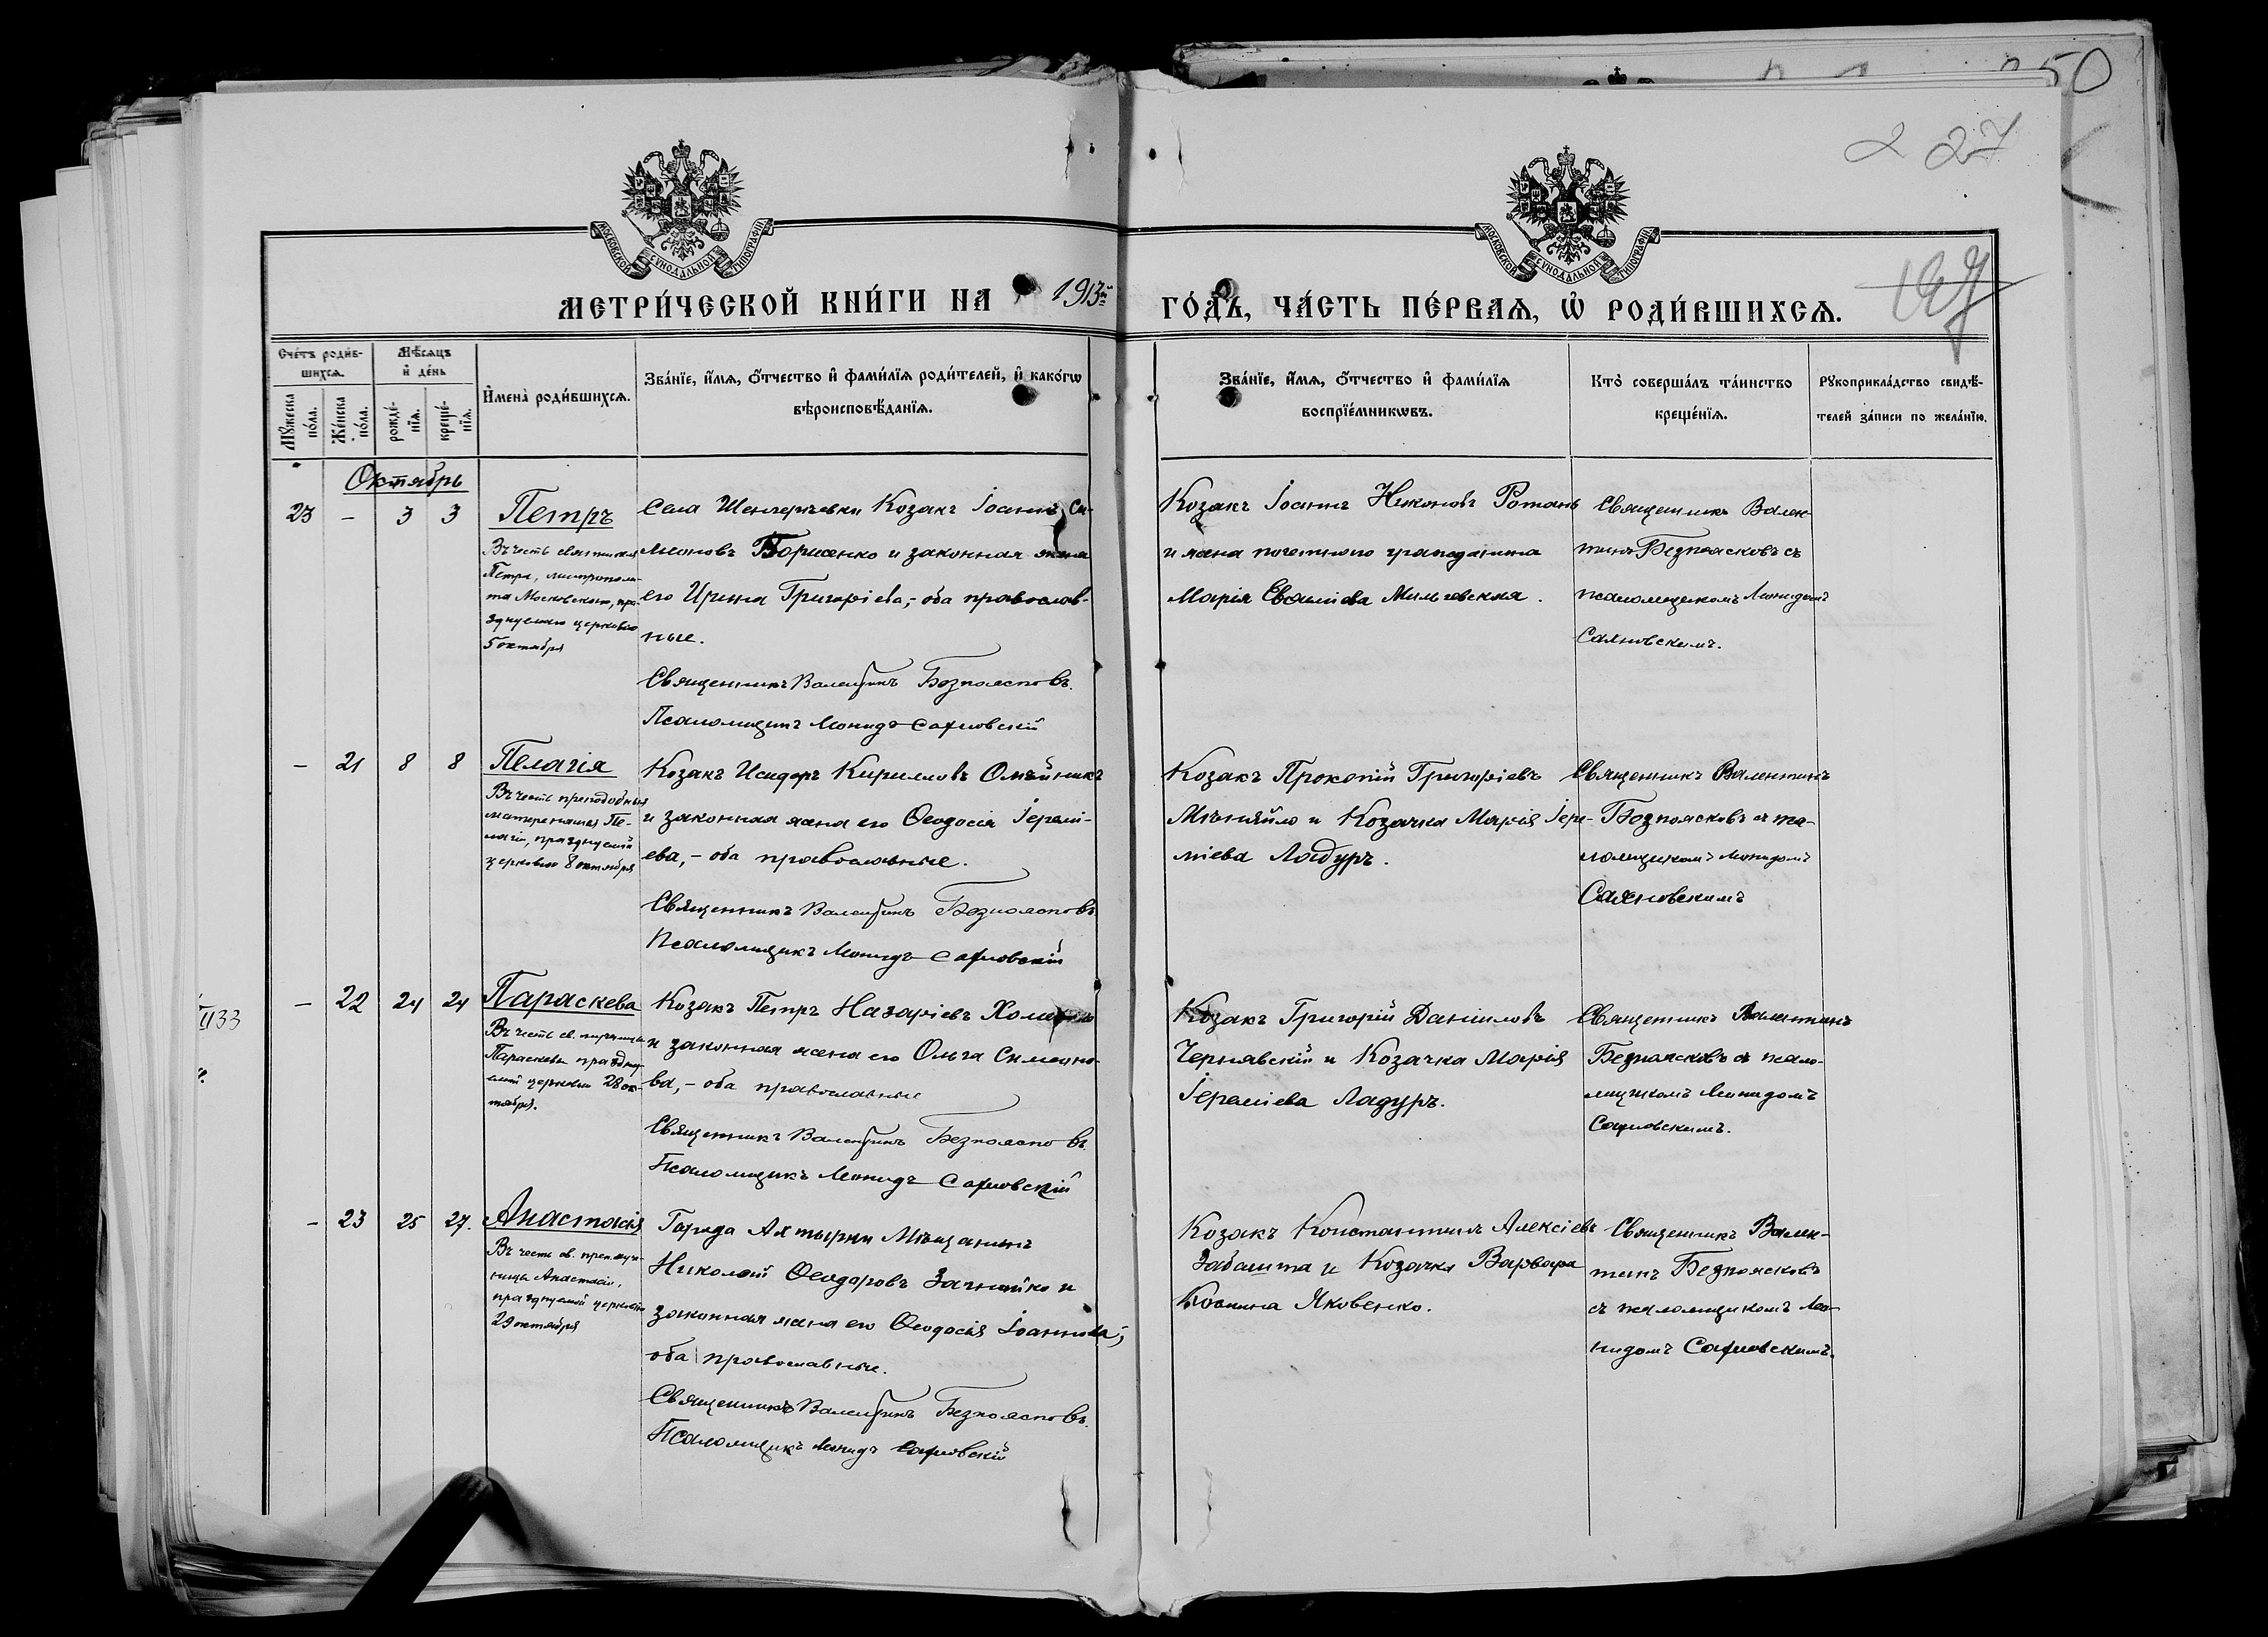 50
2 27
127
МОСКОВСКОЙ СѴНОДАЛЬНОЙ ТИПОГРАФІИ
МОСКОВСКОЙ СѴНОДАЛЬНОЙ ТИПОГРАФІИ
МЕТРИ́ЧЕСКОЙ КНИ́ГИ НА 1913й ГО́ДЪ, ЧА́СТЬ ПЕ́РВАѦ, Ѡ҆ РОДИ́ВШИХСѦ.
Сче́тъ роди́в-
шихсѧ.
Мꙋ́жеска
по́ла.
Же́нска
по́ла.
Мѣ́сѧцъ
и҆ де́нь
рожде́-
нїѧ.
креще́-
нїѧ.
И҆мена̀ роди́вшихсѧ.
Зва́нїе, и҆́мѧ, ѻ҆́тчество и҆ фами́лїѧ роди́телей, и҆ како́гѡ
вѣроисповѣ́данїѧ.
Зва́нїе, и҆́мѧ, ѻ҆́тчество и҆ фами́лїѧ
воспрїе́мникѡвъ.
Кто̀ соверша́лъ та́инство
креще́нїѧ.
Рꙋкоприкла́дство свидѣ́-
телей за́писи по жела́нїю.
Октябрь
23 – 3 3
Петръ
Въ честь святителя
Петра, митрополи-
та Московскаго, пра-
зднуемаго церковію
5 октября
Села Козакъ Іоаннъ Си-
меоновъ Борисенко и законная жена
его Ирина Григоріева,- оба православ-
ные.
Священникъ Валентинъ Безпоясковъ.
Псаломщикъ Леонидъ
Козакъ Іоаннъ Никоновъ Ротань
и жена почетнаго гражданина
Марія
Священникъ Вален-
тинъ Безпоясковъ съ
псаломщикомъ Леонидомъ
– 21 8 8
Пелагія
Въ честь преподобныя
матери нашея Пе-
лагіи, празднуемой
церковію 8 октября
Козакъ Исидоръ Кирилловъ Олѣйникъ
и законная жена его Ѳеодосія Іеремі-
ева,- оба православные.
Священникъ Валентинъ Безпоясковъ
Псаломщикъ Леонидъ
Козакъ Прокопій Григоріевъ
и Козачка Марія Іере-
міева Ладуръ.
Священникъ Валентинъ
Безпоясковъ съ пса-
ломщикомъ Леонидомъ
1133
?
– 22 24 24
Параскева
Въ честь св. мученицы
Параскевы празднуе-
мой церковію 28 ок-
тября.
Козакъ Петръ Назаріевъ
и законная жена его Ольга Симеоно-
ва,- оба православные
Священникъ Валентинъ Безпоясковъ.
Псаломщикъ Леонидъ
Козакъ Григорій Даніиловъ
Чернявскій и Козачка Марія
Іереміева Ладуръ.
Священникъ Валентинъ
Безпоясковъ съ псало-
мщикомъ Леонидомъ
– 23 25 27.
Анастасія
Въ честь св. преп. муче-
ницы Анастасіи,
празднуемой церковію
29 октября
Города Ахтырки Мѣщанинъ
Николай Ѳеодоровъ и
законная жена его Ѳеодосія Іоаннова;
оба православные.
Священникъ Валентинъ Безпоясковъ.
Псаломщикъ Леонидъ
Козакъ Константинъ Алексіевъ
Забашта и Козачка Варвара
Яковенко.
Священникъ Вален-
тинъ Безпоясковъ
съ псаломщикомъ Лео-
нидомъ